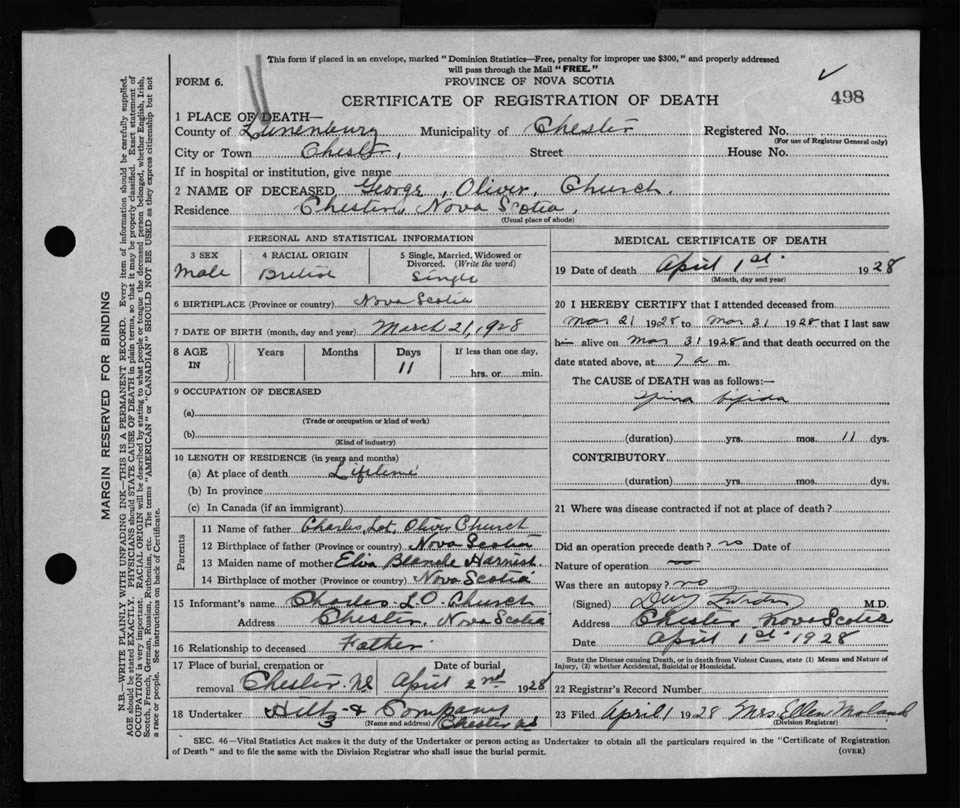 This form if placed in an envelope, marked "Dominion Statistics—Free, penalty for improper use $300," and properly addressed
will pass through the Mail "FREE."
FORM 6.
PROVINCE OF NOVA SCOTIA
CERTIFICATE OF REGISTRATION OF DEATH
498
1 PLACE OF DEATH—
County of Lunenburg Municipality of Chester Registered No.
(For use of Registrar General only)
City or Town Chester, Street House No.
If in hospital or institution, give name
2 NAME OF DECEASED George, Oliver, Church.
Residence Chester, Nova Scotia,
(Usual place of abode)
PERSONAL AND STATISTICAL INFORMATION
3 SEX
Male
4 RACIAL ORIGIN
British
5 Single, Married, Widowed or
Divorced. (Write the word)
Single
6 BIRTHPLACE (Province or country) Nova Scotia
7 DATE OF BIRTH (month, day and year) March 21, 1928
8 AGE
IN
Years
Months
Days
11
If less than one day,
hrs. or min.
9 OCCUPATION OF DECEASED
(a)
(Trade or occupation or kind of work)
(b)
(Kind of industry)
10 LENGTH OF RESIDENCE (in years and months)
(a) At place of death Lifetime
(b) In province
(c) In Canada (if an immigrant)
Parents
11 Name of father Charles, Lot, Oliver Church
12 Birthplace of father (Province or country) Nova Scotia
13 Maiden name of mother Elva Blanche
14 Birthplace of mother (Province or country) Nova Scotia
15 Informant's name Charles L O Church
Address Chester, Nova Scotia
16 Relationship to deceased Father
17 Place of burial, cremation or
removal Chester. NS
Date of burial
April 2nd 1928
18 Undertaker & Company
(Name and address) Chester NS
MEDICAL CERTIFICATE OF DEATH
19 Date of death April 1st. 1928
(Month, day and year)
20 I HEREBY CERTIFY that I attended deceased from
Mar 21 1928 to Mar 31 1928 that I last saw
him alive on Mar 31 1928 and that death occurred on the
date stated above, at 7 a m.
The CAUSE of DEATH was as follows:—
Spina bifida
(duration) yrs. mos. 11 dys.
CONTRIBUTORY
(duration) yrs. mos. dys.
21 Where was disease contracted if not at place of death?
Did an operation precede death? no Date of
Nature of operation no
Was there an autopsy? no
(Signed) M.D.
Address Chester Nova Scotia
Date April 1st. 1928
State the Disease causing Death, or in death from Violent Causes, state (1) Means and Nature of
Injury, (2) whether Accidental, Suicidal or Homicidal.
22 Registrar's Record Number
23 Filed April 1 1928 Mrs Ellen
(Division Registrar)
SEC. 46—Vital Statistics Act makes it the duty of the Undertaker or person acting as Undertaker to obtain all the particulars required in the "Certificate of Registration
of Death" and to file the same with the Division Registrar who shall issue the burial permit.
(OVER)
MARGIN RESERVED FOR BINDING
N.B.—WRITE PLAINLY WITH UNFADING INK—THIS IS A PERMANENT RECORD. Every item of information should be carefully supplied.
AGE should be stated EXACTLY. PHYSICIANS should STATE CAUSE OF DEATH in plain terms, so that it may be properly classified. Exact statement of
OCCUPATION is very important. RACIAL ORIGIN will be described by stating to what people or tongue the deceased person belonged, whether English, Irish,
Scotch, French, German, Russian, Ruthenian, etc. The terms "AMERICAN" or "CANADIAN" SHOULD NOT BE USED as they express citizenship but not
a race or people. See instructions on back of Certificate.